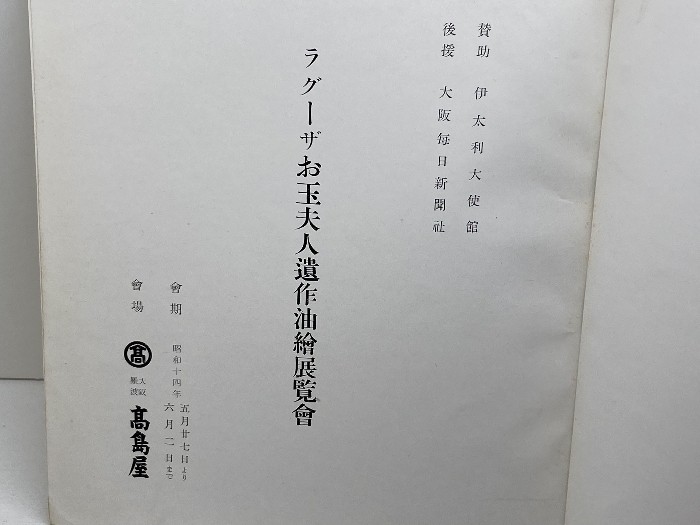 賛助 伊太利大使館
後援 大阪毎日新聞社
ラグーザお玉夫人遺作油繪展覧會
會期 昭和十四年 五月廿七日より 六月二日まで
會場 髙 大阪難波 髙島屋